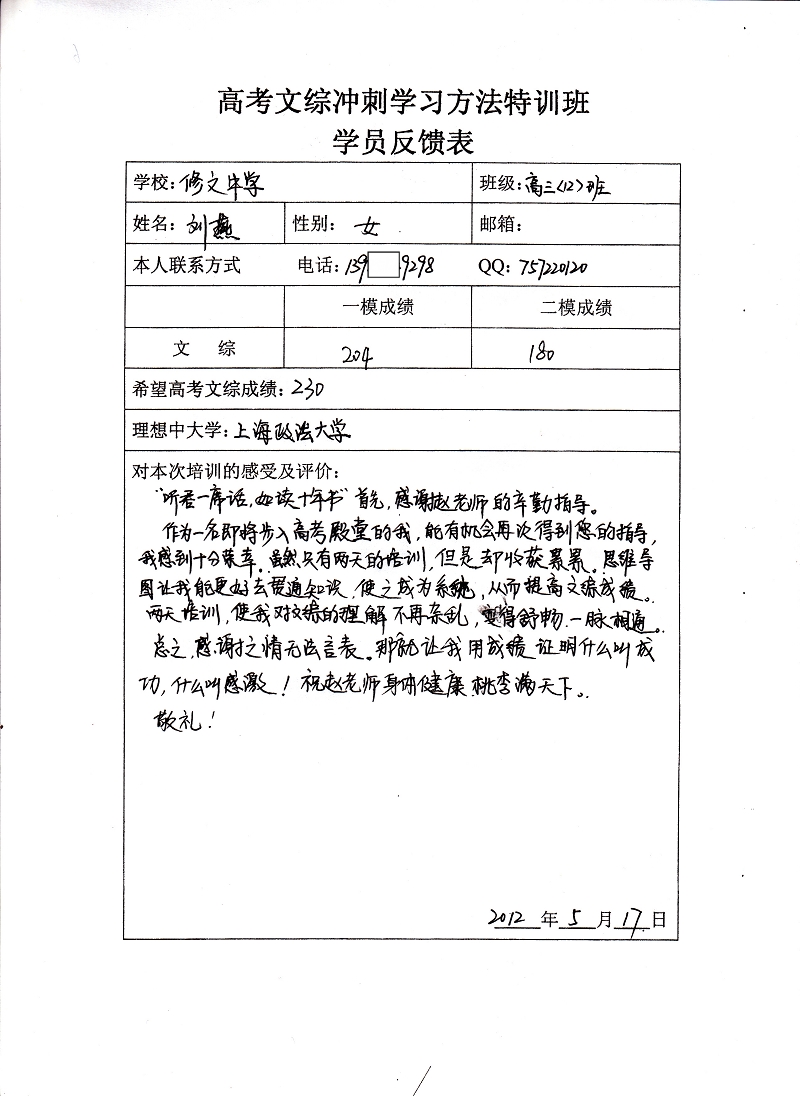 高考文综冲刺学习方法特训班
学员反馈表
学校：修文中学 班级：高三〈12〉班
姓名：刘燕 性别：女 邮箱：
本人联系方式 电话：139 9298 QQ：757220120
一模成绩 二模成绩
文 综 204 180
希望高考文综成绩：230
理想中大学：上海政法大学
对本次培训的感受及评价：
“听君一席话，如读十年书”首先，感谢赵老师的辛勤指导。
作为一名即将步入高考殿堂的我，能有机会再次得到您的指导，
我感到十分荣幸。虽然只有两天的培训，但是却收获累累。思维导
图让我能更好去贯通知识，使之成为系统，从而提高文综成绩。
两天培训，使我对文综的理解不再杂乱，变得舒畅.一脉相通。
总之，感谢之情无法言表。那就让我用成绩证明什么叫成
功，什么叫感激！祝赵老师身体健康.桃李满天下。
敬礼！
2012 年 5 月 17 日